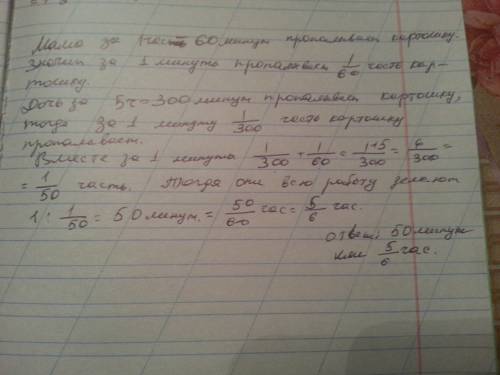 Мама за 1час = 60 минут пропалывает картошку.
значит за 1 минуту пропалывает 1/60 часть кар-
тошку.
Дочь за 5ч=300 минут пропалывает картошку,
тогда за 1 минуту 1/300 часть картошку
пропалывает.
Вместе за 1 минута 1/300 + 1/60 = 1+5/300 = 6/300 =
= 1/50 часть. Тогда они всю работу делают
1 : 1/50 = 50 минут. = 50/60 час = 5/6 час.
ответ: 50 минут
или 5/6 час.